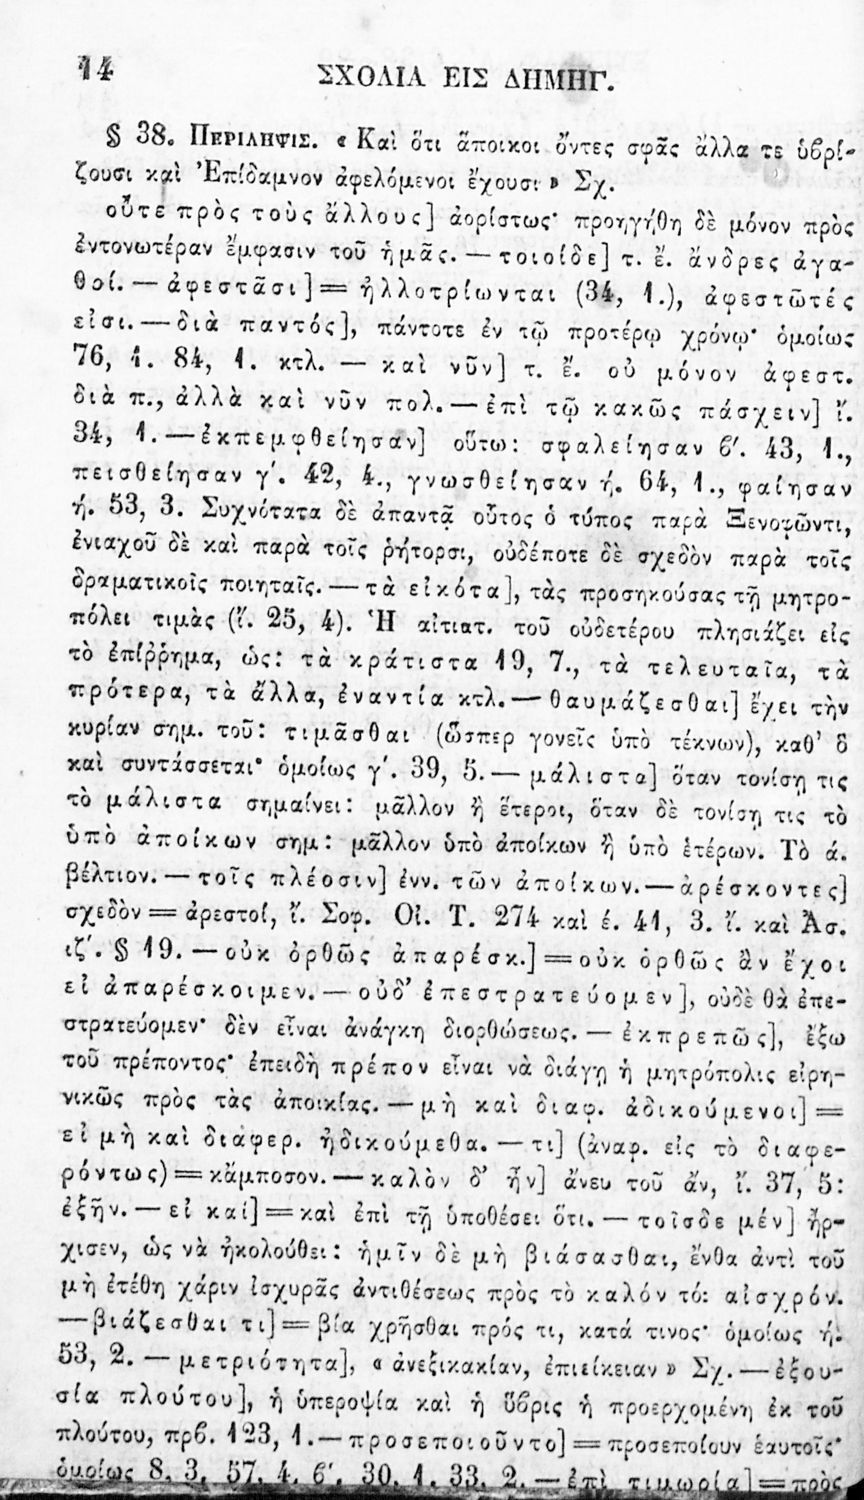 14
ΣΧΟΛΙΑ ΕΙΣ ΔΗΜΗΓ.
§ 38. ΠΕΡΙΛΗΨΙΣ. « Καὶ ὅτι ἄποικοι ὄντες σφᾶς ἄλλα τε ὑβρί-
ζουσι καὶ Ἐπίδαμνον ἀφελόμενοι ἔχουσι » Σχ.
οὔτε πρὸς τοὺς ἄλλους] ἀορίστως· προηγήθη δὲ μόνον πρὸς
ἐντονωτέραν ἔμφασιν τοῦ ἡμᾶς. — τοιοίδε] τ. ἔ. ἄνδρες ἀγα-
θοί. — ἀφεστᾶσι] = ἠλλοτρίωνται (34, 1.), ἀφεστῶτές
εἰσι. — διὰ παντός], πάντοτε ἐν τῷ προτέρῳ χρόνῳ· ὁμοίως
76, 1. 84, 1. κτλ. — καὶ νῦν] τ. ἔ. οὐ μόνον ἀφεστ.
διὰ π., ἀλλὰ καὶ νῦν πολ. — ἐπὶ τῷ κακῶς πάσχειν] ἴ.
34, 1. — ἐκπεμφθείησαν] οὕτω: σφαλείησαν β΄. 43, 1.,
πεισθείησαν γ΄. 42, 4., γνωσθείησαν ή. 64, 1., φαίησαν
ή. 53, 3. Συχνότατα δὲ ἀπαντᾷ οὗτος ὁ τύπος παρὰ Ξενοφῶντι,
ἐνιαχοῦ δὲ καὶ παρὰ τοῖς ῥήτορσι, οὐδέποτε δὲ σχεδὸν παρὰ τοῖς
δραματικοῖς ποιηταῖς. — τὰ εἰκότα], τὰς προσηκούσας τῇ μητρο-
πόλει τιμὰς (ἴ. 25, 4). Ἡ αἰτιατ. τοῦ οὐδετέρου πλησιάζει εἰς
τὸ ἐπίῤῥημα, ὡς: τὰ κράτιστα 19, 7., τὰ τελευταῖα, τὰ
πρότερα, τὰ ἄλλα, ἐναντία κτλ. — θαυμάζεσθαι] ἔχει τὴν
κυρίαν σημ. τοῦ: τιμᾶσθαι (ὥσπερ γονεῖς ὑπὸ τέκνων), καθ’ ὃ
καὶ συντάσσεται· ὁμοίως γ΄. 39, 5. — μάλιστα] ὅταν τονίσῃ τις
τὸ μάλιστα σημαίνει: μᾶλλον ἢ ἕτεροι, ὅταν δὲ τονίσῃ τις τὸ
ὑπὸ ἀποίκων σημ: μᾶλλον ὑπὸ ἀποίκων ἢ ὑπὸ ἑτέρων. Τὸ ά.
βέλτιον. — τοῖς πλέοσιν] ἐνν. τῶν ἀποίκων. — ἀρέσκοντες]
σχεδὸν = ἀρεστοί, ἴ. Σοφ. Οἰ. Τ. 274 καὶ έ. 41, 3. ἴ. καὶ Ἀσ.
ιζ΄. § 19. — οὐκ ὀρθῶς ἀπαρέσκ.] = οὐκ ὀρθῶς ἂν ἔχοι
εἰ ἀπαρέσκοιμεν. — οὐδ’ ἐπεστρατεύομεν], οὐδὲ θὰ ἐπε-
στρατεύομεν· δὲν εἶναι ἀνάγκη διορθώσεως. — ἐκπρεπῶς], ἔξω
τοῦ πρέποντος· ἐπειδὴ πρέπον εἶναι νὰ διάγῃ ἡ μητρόπολις εἰρη-
νικῶς πρὸς τὰς ἀποικίας. — μὴ καὶ διαφ. ἀδικούμενοι] =
εἰ μὴ καὶ διαφερ. ἠδικούμεθα. — τι] (ἀναφ. εἰς τὸ διαφε-
ρόντως) = κἄμποσον. — καλὸν δ’ ἦν] ἄνευ τοῦ ἄν, ἴ. 37, 5:
ἐξῆν. — εἰ καί] = καὶ ἐπὶ τῇ ὑποθέσει ὅτι. — τοῖσδε μέν] ἤρ-
χισεν, ὡς νὰ ἠκολούθει: ἡμῖν δὲ μὴ βιάσασθαι, ἔνθα ἀντὶ τοῦ
μὴ ἐτέθη χάριν ἰσχυρᾶς ἀντιθέσεως πρὸς τὸ καλόν τό: αἰσχρόν.
— βιάζεσθαι τι] = βίᾳ χρῆσθαι πρός τι, κατά τινος· ὁμοίως ή.
53, 2. — μετριότητα], « ἀνεξικακίαν, ἐπιείκειαν » Σχ. — ἐξου-
σίᾳ πλούτου], ἡ ὑπεροψία καὶ ἡ ὕβρις ἡ προερχομένη ἐκ τοῦ
πλούτου, πρβ. 123, 1. — προσεποιοῦντο] = προσεποίουν ἑαυτοῖς·
ὁμοίως 8, 3, 57, 4, β΄. 30, 1. 33, 2. — ἐπὶ τιμωρίᾳ] = πρὸς